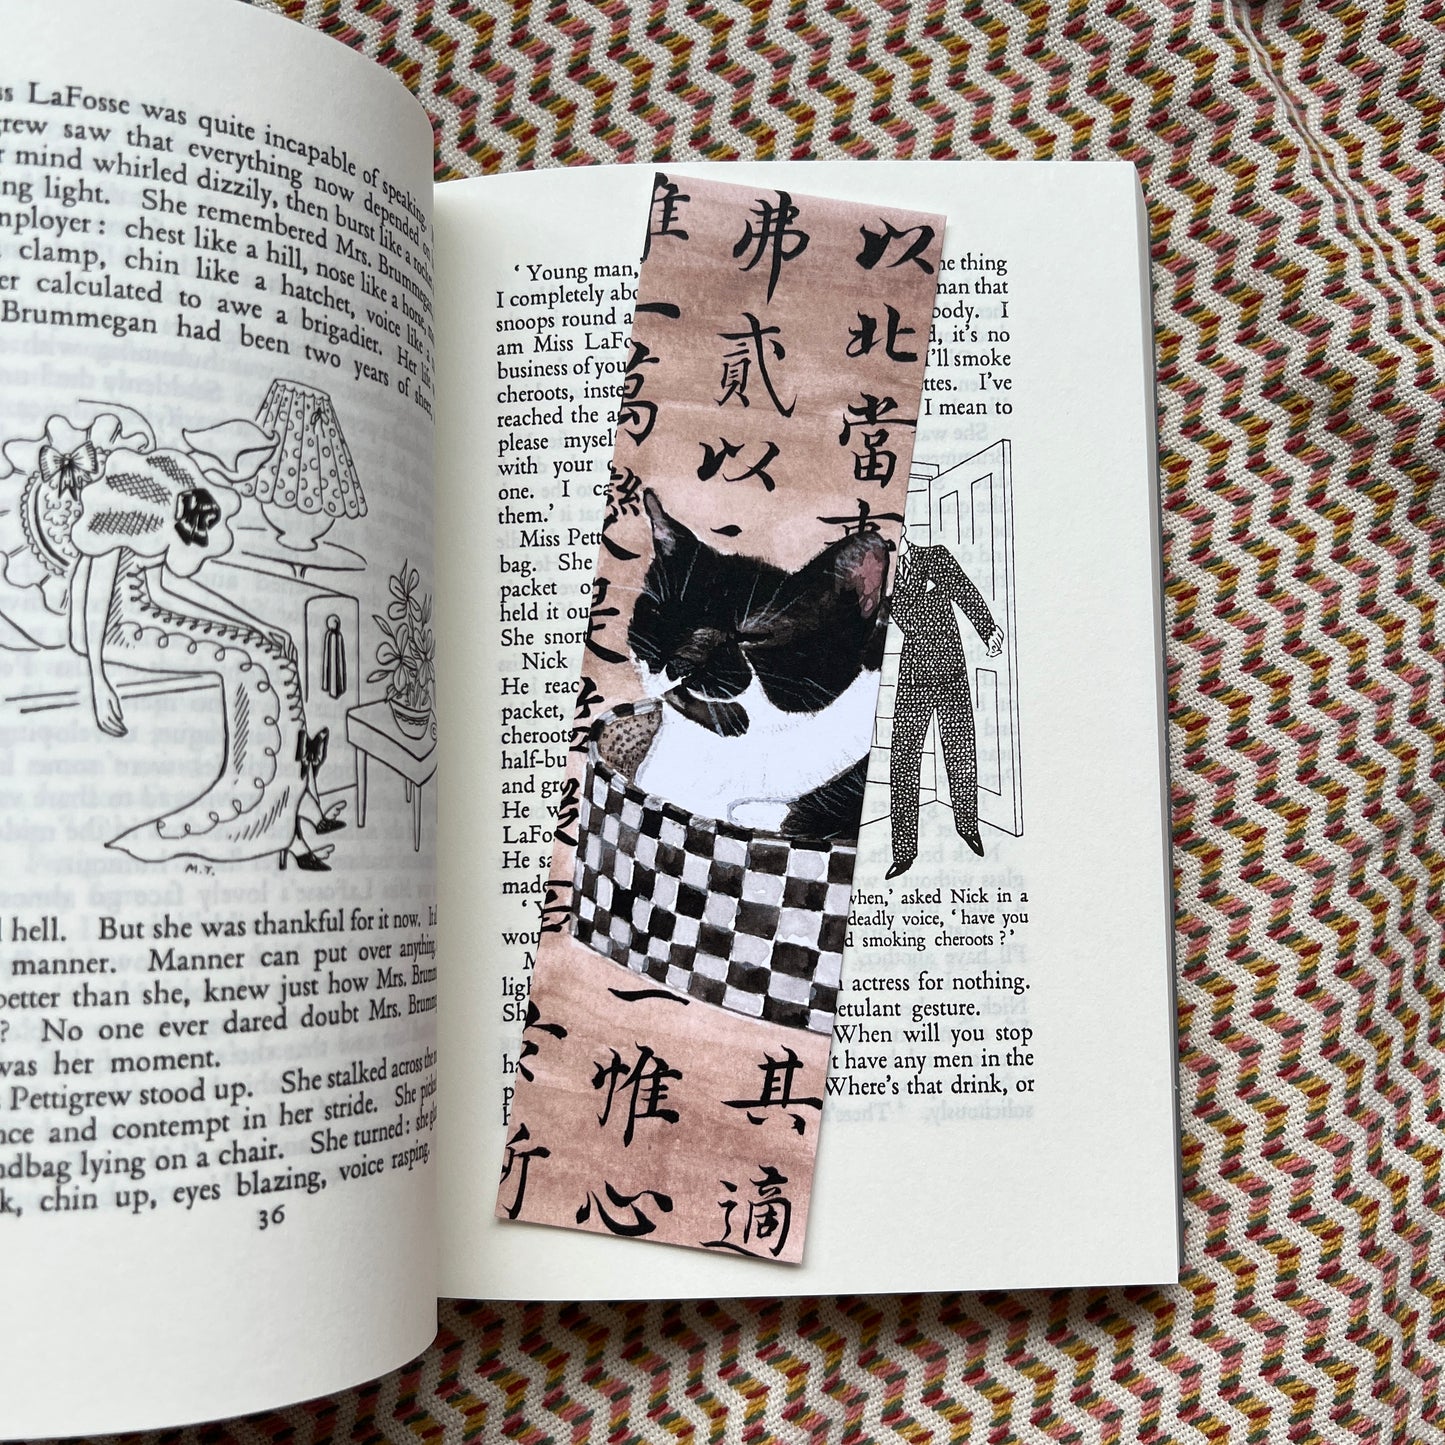 ss LaFosse was quite incapable of speaking.
grew saw that everything now depended on
r mind whirled dizzily, then burst like a rocket
ing light. She remembered Mrs. Brummegan,
mployer: chest like a hill, nose like a
clamp, chin like a hatchet, voice like a
er calculated to awe a brigadier. Her life
Brummegan had been two years of sheer
M.T.
hell. But she was thankful for it now.
manner. Manner can put over anything,
better than she, knew just how Mrs. Brum
? No one ever dared doubt Mrs. Brum
was her moment.
Pettigrew stood up. She stalked across the
nce and contempt in her stride. She picked
ndbag lying on a chair. She turned: she
k, chin up, eyes blazing, voice rasping.
36
‘Young man,’
ne thing
I completely abo
man that
snoops round a
body. I
am Miss LaFo
d, it’s no
business of you
I’ll smoke
cheroots, inste
ttes. I’ve
reached the a
I mean to
please mysel
with your
one. I ca
them.’
Miss Pett
bag. She
packet o
held it ou
She snort
Nick
He reac
packet,
cheroots
half-bu
and gr
He w
LaFo
He sa
made
wou
ligh
Sh
ha
when,’ asked Nick in a
deadly voice, ‘have you
d smoking cheroots?’
actress for nothing.
petulant gesture.
When will you stop
’t have any men in the
Where’s that drink, or
以北當
弗貳以一
一萬
是
一惟心
其適